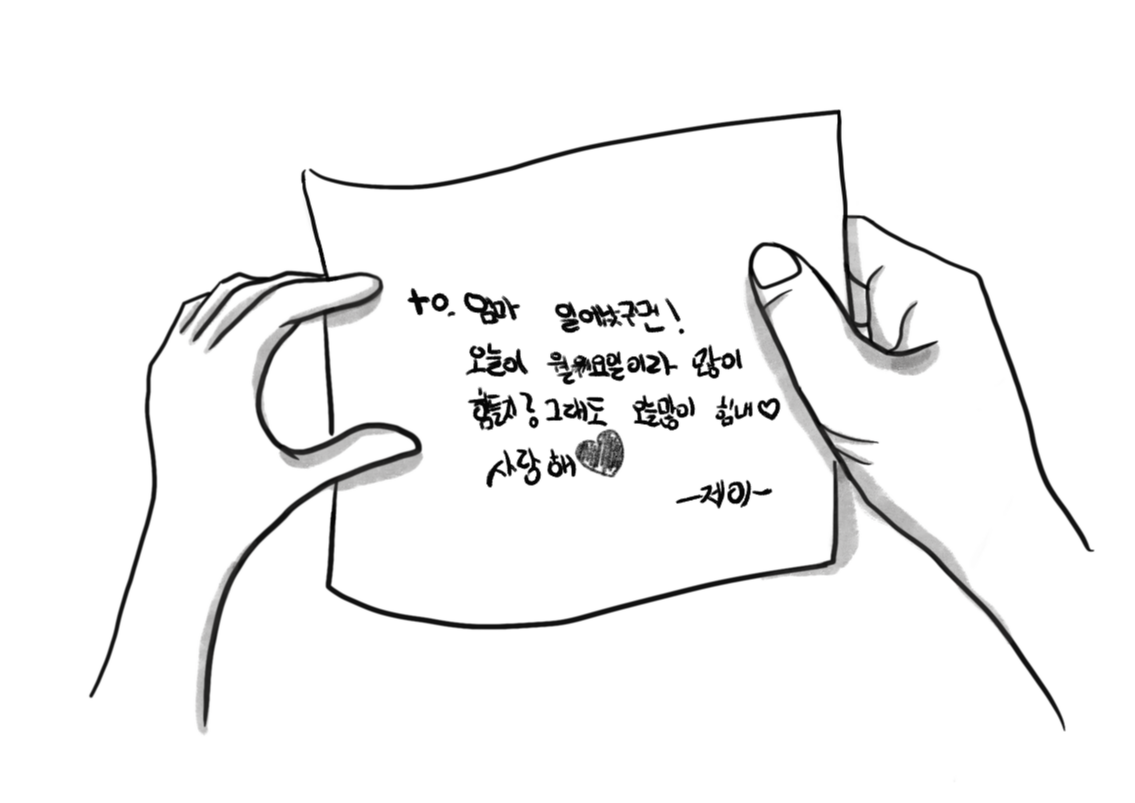 to. 엄마 일어났구먼!
오늘이 월요일이라 많이
힘들지롱 그래도 오늘많이 힘내♡
사랑해♥
-제이-